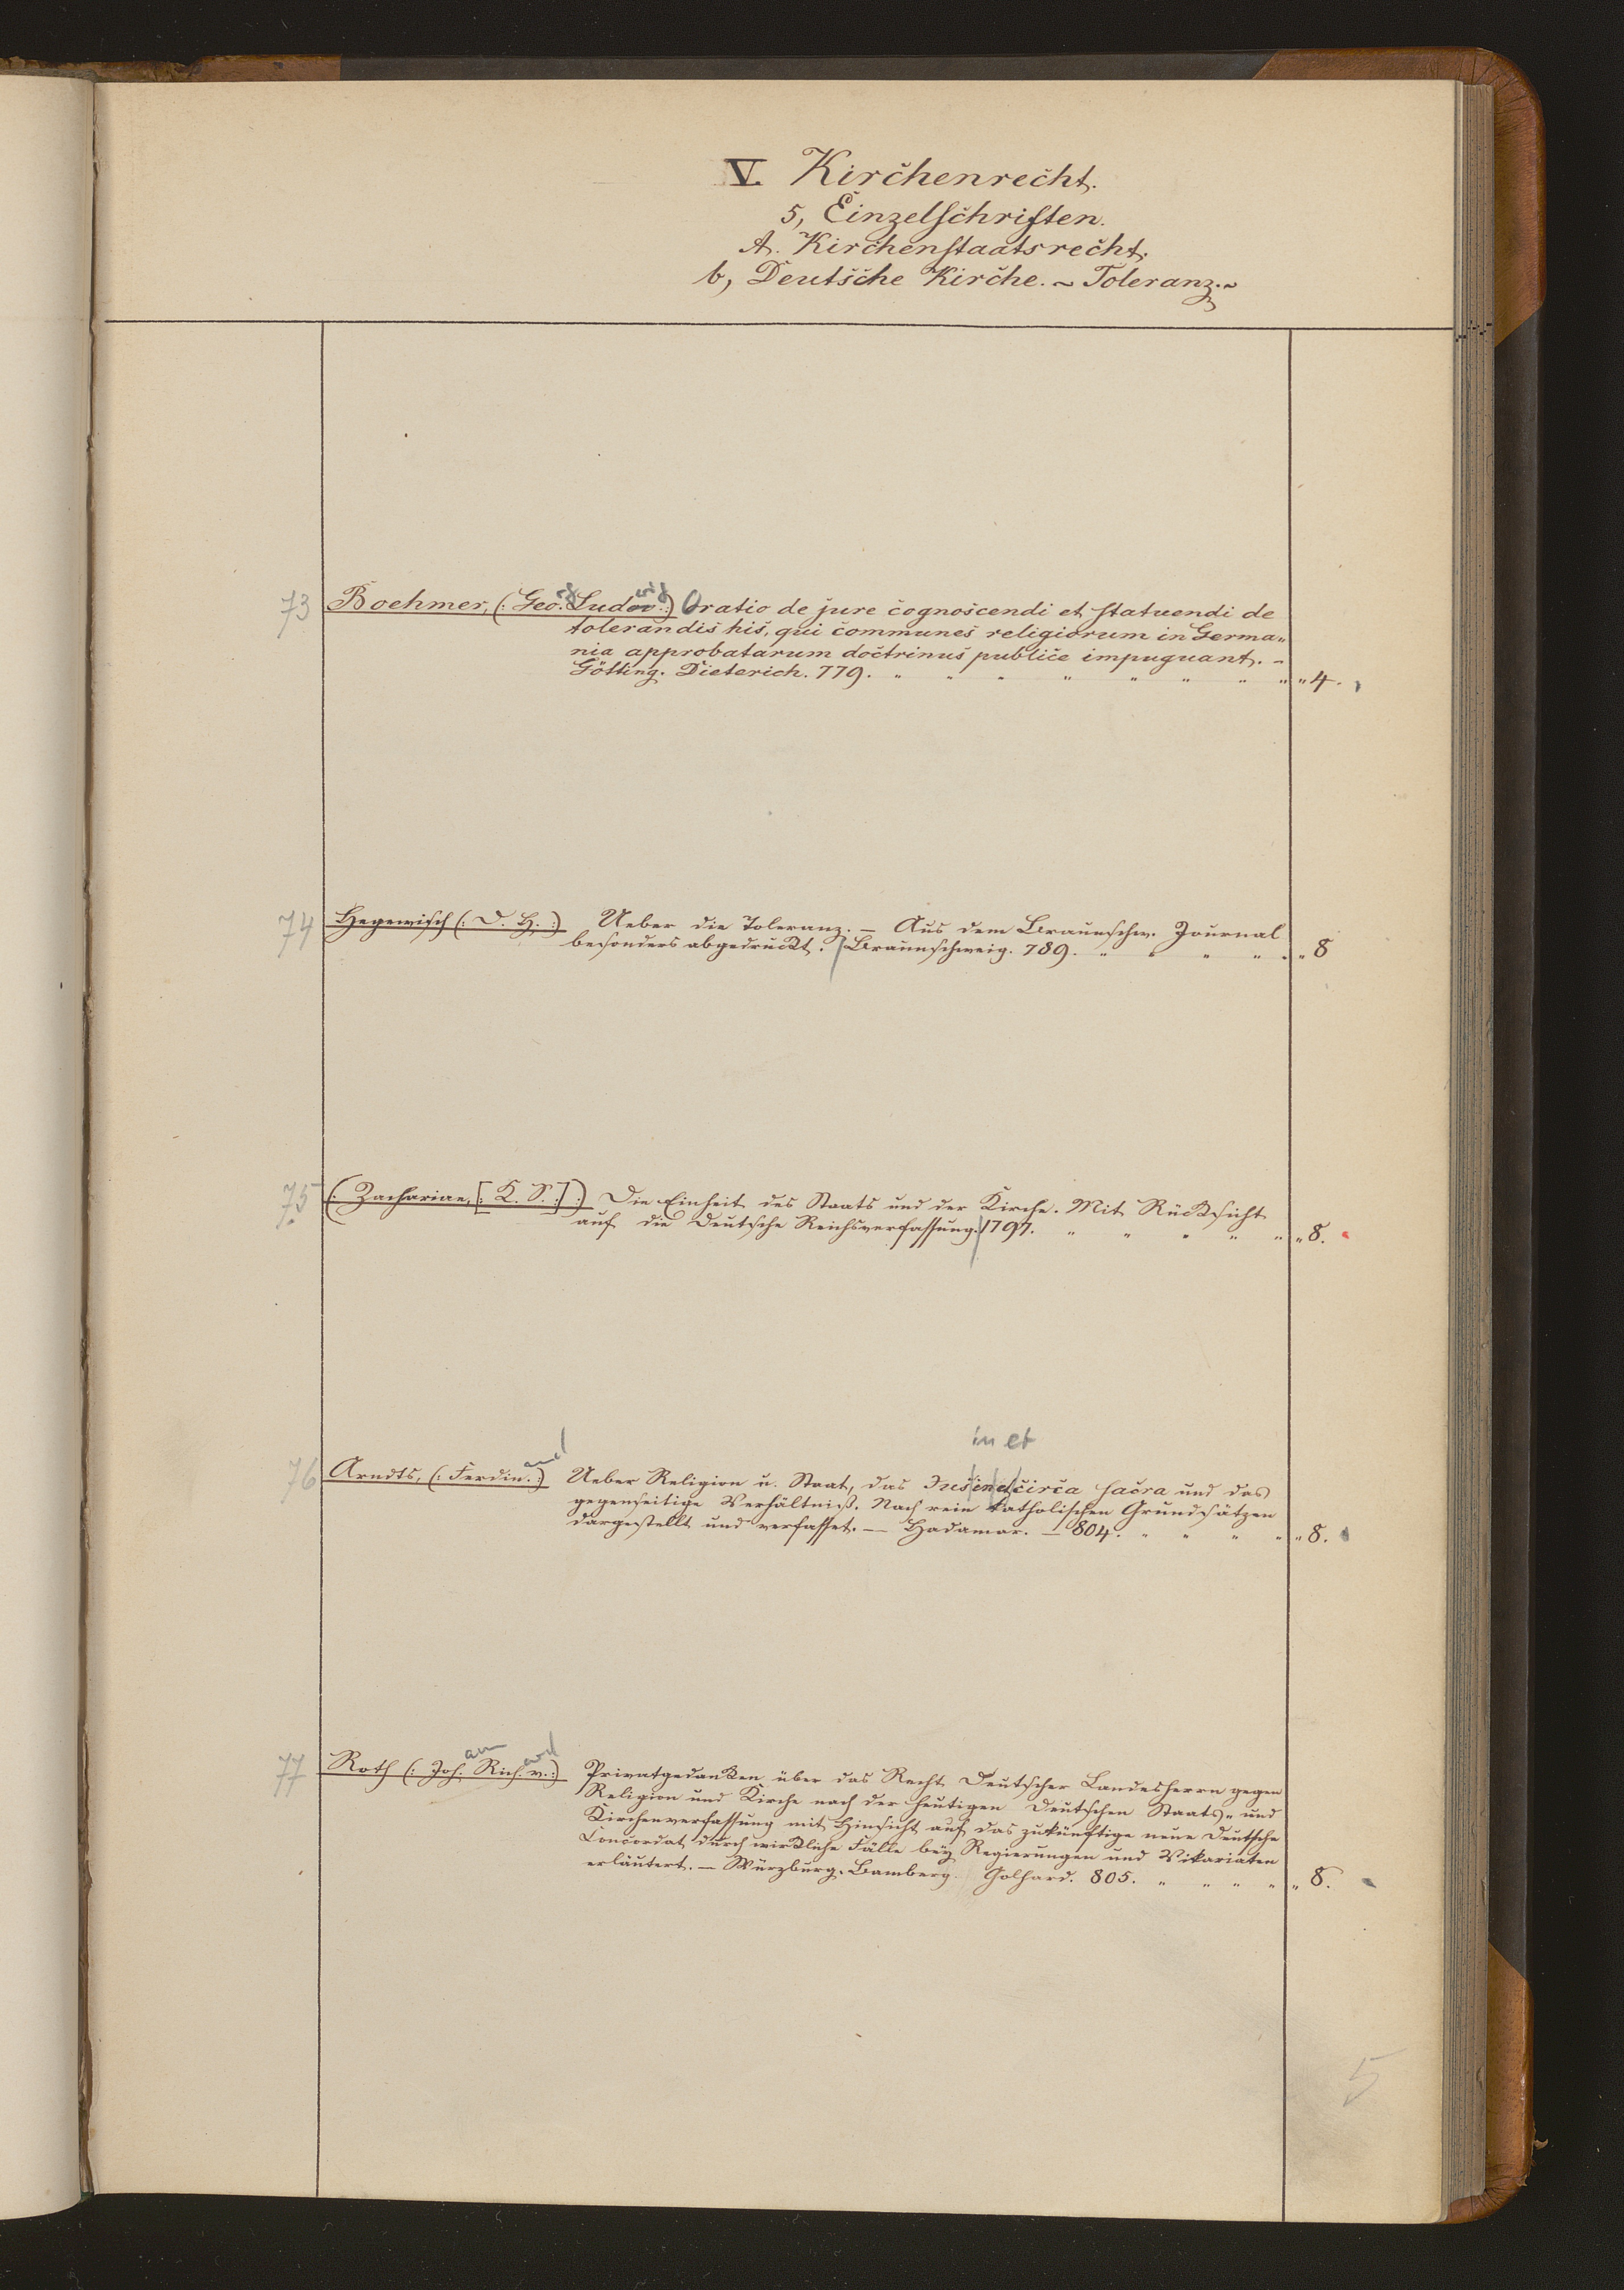 V. Kirchenrecht.
5, Einzelschriften.
A. Kirchenstaatsrecht.
b, Deutsche Kirche. ~ Toleranz. ~
73 Boehmer, (: Geo.rg Ludov.wig :) Oratio de jure cognoscendi et statuendi de
tolerandis his, qui communes religiorum in Germa„
nia approbatarum doctrinus publice impuguant. –
Götting. Dieterich. 779. „ „ „ „ „ „ „ „ „ 4.
74 Hegewisch (: D. H. :) Ueber die Toleranz. – Aus dem Braunschw. Journal
besonders abgedruckt. / Braunschweig. 789. „ „ „ „ „ „ 8
75 (: Zachariae, [: K. S. :] :) Die Einheit des Staats und der Kirche. Mit Rücksicht
auf die Deutsche Reichsverfassung. / 1797. „ „ „ „ „ „ 8.
in et
76 Arndts, (: Ferdin.and :) Ueber Religion u. Staat, das Jus in et circa sacra und das
gegenseitige Verhältniß. Nach rein katholischen Grundsätzen
dargestellt und verfasset. — Hadamar. — 804. „ „ „ „ „ 8.
77 Roth (: Joh.ann Rich.ard v. :) Privatgedanken über das Recht Deutscher Landesherrn gegen
Religion und Kirche nach der heutigen Deutschen Staats„ und
Kirchenverfassung mit Hinsicht auf das zukünftige neue Deutsche
Concordat durch wirkliche Fälle bey Regierungen und Vikariaten
erläutert. — Würzburg. Bamberg. Golhard. 805. „ „ „ „ „ 8.
5